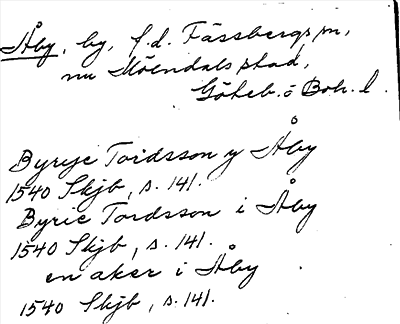 Åby, by, f.d. Fässbergs sn,
nu Mölndals stad,
Göteb. o Boh. l.
Byrye Tordsson y Åby
1540 Skjb, s. 141.
Byrie Tordsson i Åby
1540 Skjb, s. 141.
en aker i Åby
1540 Skjb, s. 141.